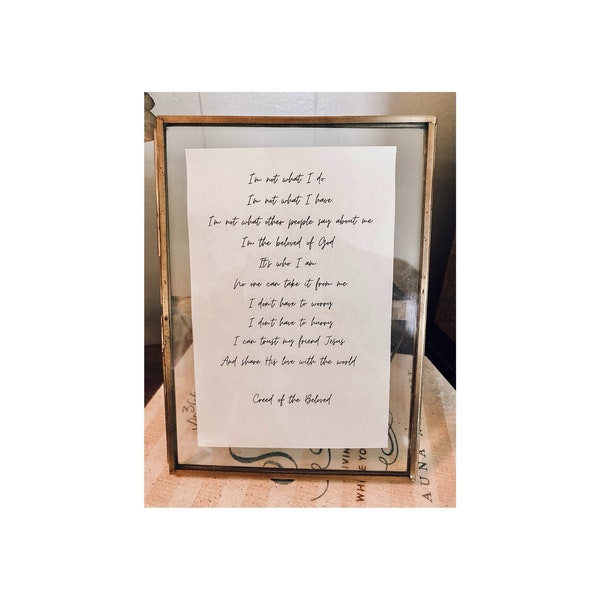 I'm not what I do.
I'm not what I have.
I'm not what other people say about me.
I'm the beloved of God
It's who I am.
No one can take it from me.
I don't have to worry.
I don't have to hurry.
I can trust my friend Jesus
And share His love with the world
Creed of the Beloved
AUNA